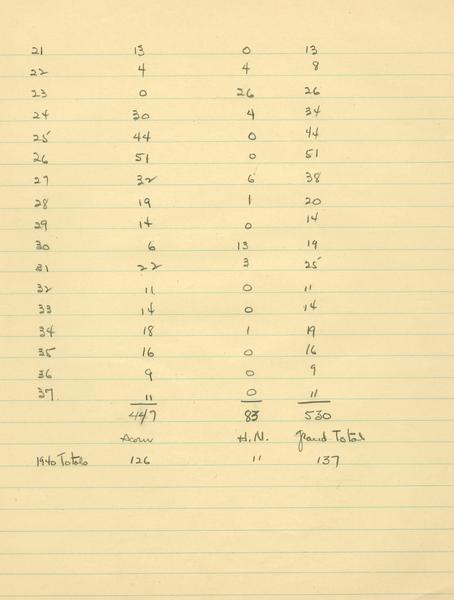 21 13 0 13
22 4 4 8
23 0 26 26
24 30 4 34
25 44 0 44
26 51 0 51
27 32 6 38
28 19 1 20
29 14 0 14
30 6 13 19
31 22 3 25
32 11 0 11
33 14 0 14
34 18 1 19
35 16 0 16
36 9 0 9
37 11 0 11
447 83 530
Acorn H.N. Grand Total
1940 Totals 126 11 137